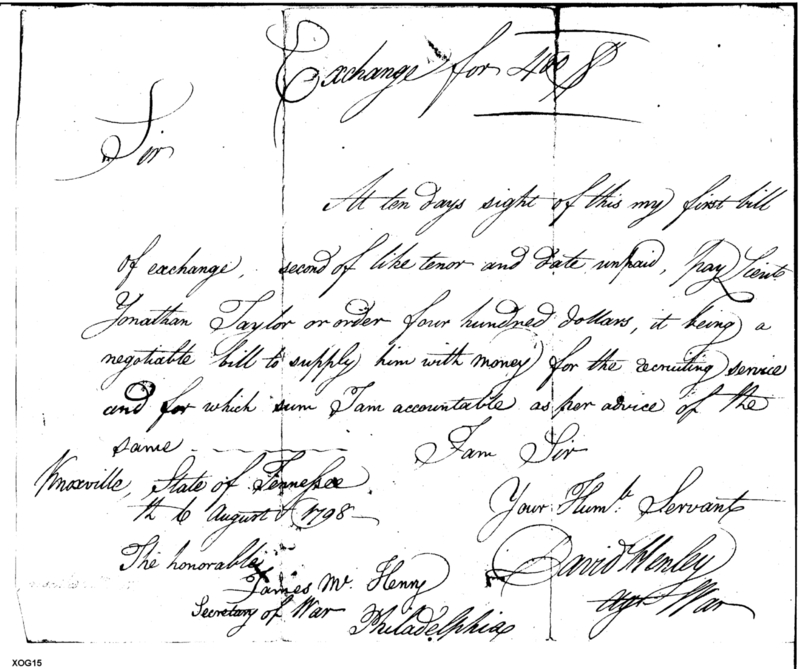 Exchange for 400 $
Sir
At ten days sight of this my first bill
of exchange, second of like tenor and date unpaid, pay Lieut.
Jonathan Taylor or order four hundred dollars, it being a
negotiable bill to supply him with money for the recruiting service
and for which sum I am accountable as per advice of the
same
I am Sir
Knoxville, State of Tennessee
th 6 August 1798
Your Humle. Servant
The honorable
James Mc. Henry
Secretary of War
Philadelphia
David Henley
Agt War
XOG15